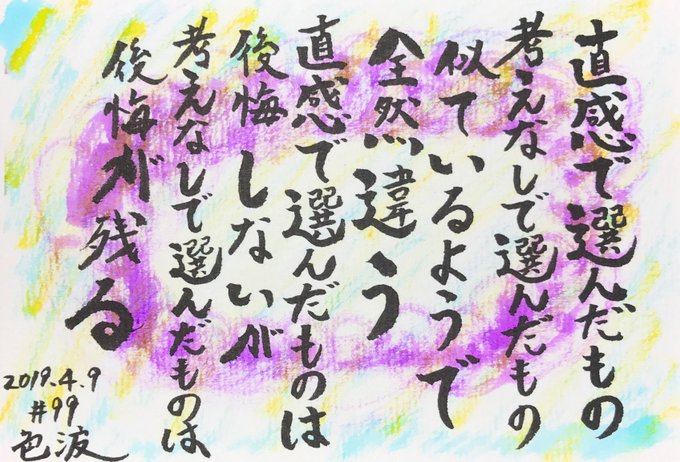 直感で選んだもの
考えなしで選んだもの
似ているようで
全然違う
直感で選んだものは
後悔しないが
考えなしで選んだものは
後悔が残る
2019.4.9
#99
色波